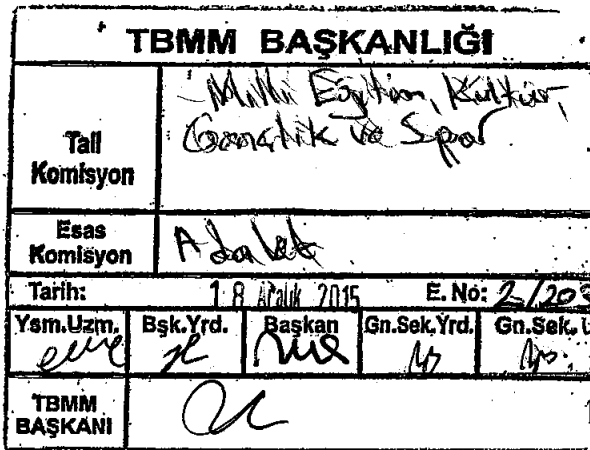 TBMM BAŞKANLIĞI
Tali Komisyon
Milli Eğitim, Kültür,
Gençlik ve Spor
Esas Komisyon
Adalet
Tarih: 18 Aralık 2015 E. No: 2/20
Ysm.Uzm. Bşk.Yrd. Başkan Gn.Sek.Yrd. Gn.Sek.
TBMM BAŞKANI